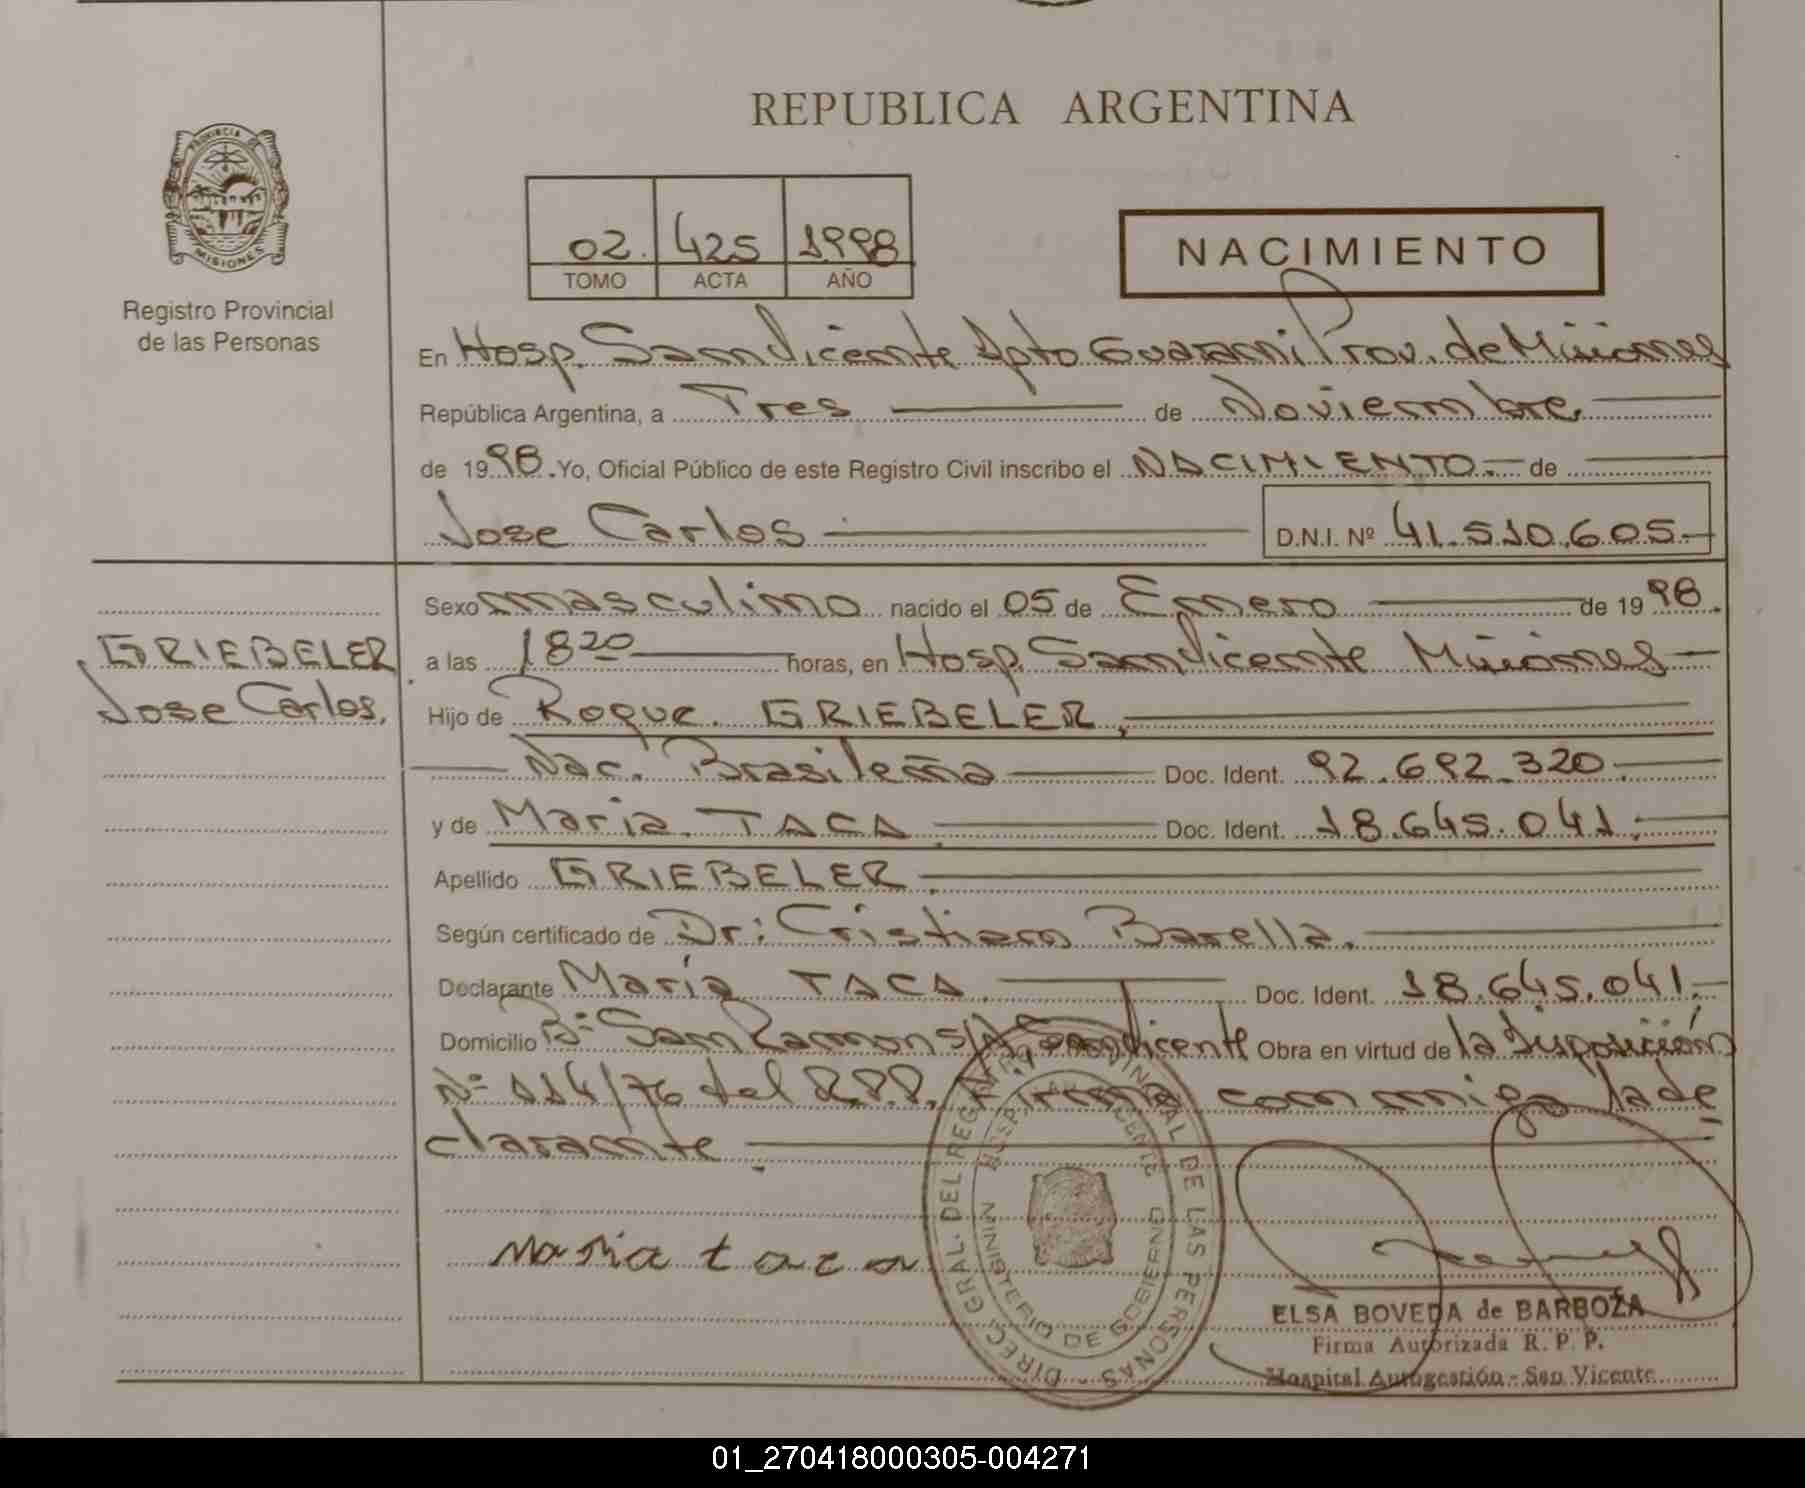 REPUBLICA ARGENTINA
PROVINCIA DE MISIONES
Registro Provincial
de las Personas
02. 425 1998
TOMO ACTA AÑO
NACIMIENTO
En Hosp. San Vicente Dpto Guarani Prov. de Misiones
República Argentina, a Tres de Noviembre
de 1998 . Yo, Oficial Público de este Registro Civil inscribo el NACIMIENTO.- de
Jose Carlos D.N.I. Nº 41.510.605.-
Sexo masculino nacido el 05 de Enero de 1998.
GRIEBELER
Jose Carlos.
a las 18 20 horas, en Hosp. San Vicente Misiones
Hijo de Roque GRIEBELER,
Nac. Brasileña Doc. Ident. 92.692.320.
y de Maria TACA Doc. Ident. 18.645.041.
Apellido GRIEBELER.
Según certificado de Dr: Cristian Barella.
Declarante María TACA Doc. Ident. 18.645.041.-
Domicilio Bº San Ramon S/N San Vicente Obra en virtud de la disposición
Nº 114/76 del R.P.P. Firma conmigo la de
clarante.
Maria taca
DIREC. GRAL. DEL REG. PROVINCIAL DE LAS PERSONAS
HOSP. SAN VICENTE
MINISTERIO DE GOBIERNO
ELSA BOVEDA de BARBOZA
Firma Autorizada R. P. P.
Hospital Autogestión - San Vicente
01_270418000305-004271